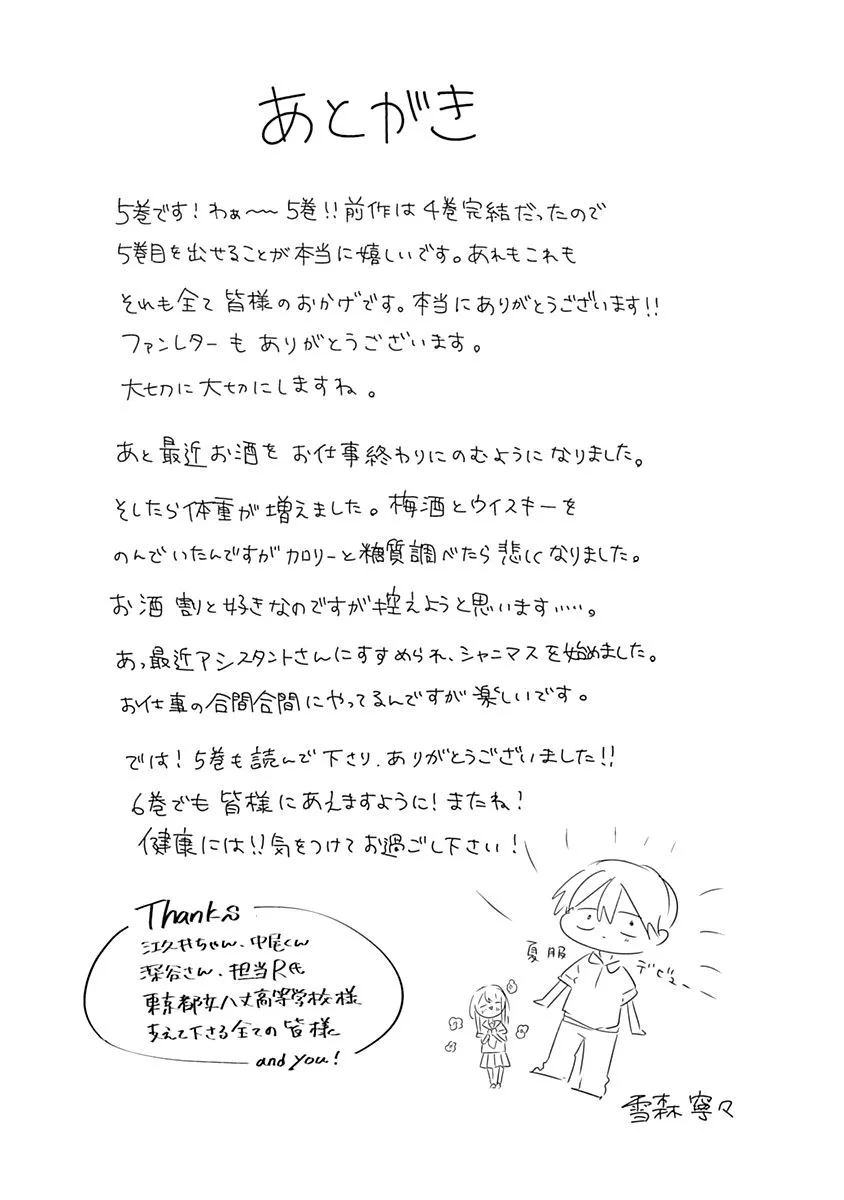 あとがき
5巻です！わぁ〜〜5巻!!前作は4巻完結だったので
5巻目を出せることが本当に嬉しいです。あれもこれも
それも全て皆様のおかげです。本当にありがとうございます!!
ファンレターもありがとうございます。
大切に大切にしますね。
あと最近お酒をお仕事終わりにのむようになりました。
そしたら体重が増えました。梅酒とウイスキーを
のんでいたんですがカロリーと糖質調べたら悲しくなりました。
お酒割と好きなのですが控えようと思います……。
あっ最近アシスタントさんにすすめられ、シャニマスを始めました。
お仕事の合間合間にやってるんですが楽しいです。
では！5巻も読んで下さり、ありがとうございました!!
6巻でも皆様にあえますように！またね！
健康には!!気をつけてお過ごし下さい！
Thanks
江久井ちゃん、中尾くん
深谷さん、担当R氏
東京都立八丈高等学校様
支えて下さる全ての皆様
and you!
夏服
デビュー
雪森寧々